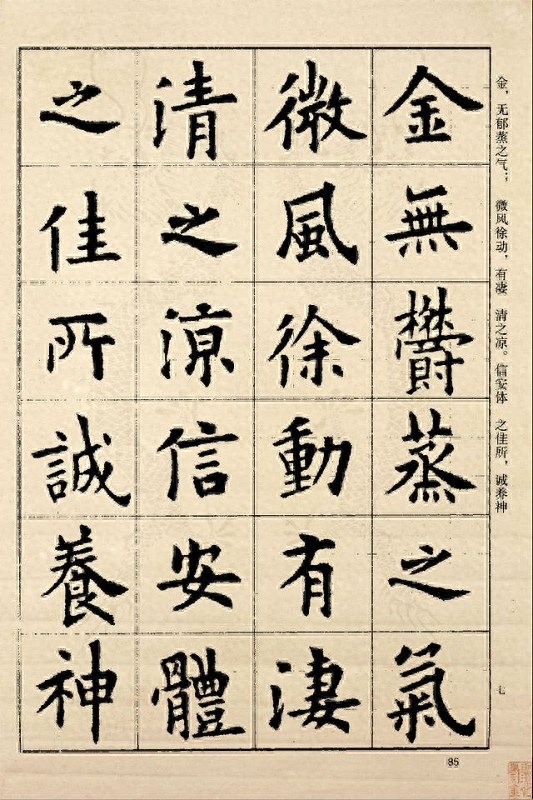 金無鬱蒸之氣
微風徐動有淒
清之涼信安體
之佳所誠養神
金，无郁蒸之气；微风徐动，有凄清之凉。信安体之佳所，诚养神
七
85